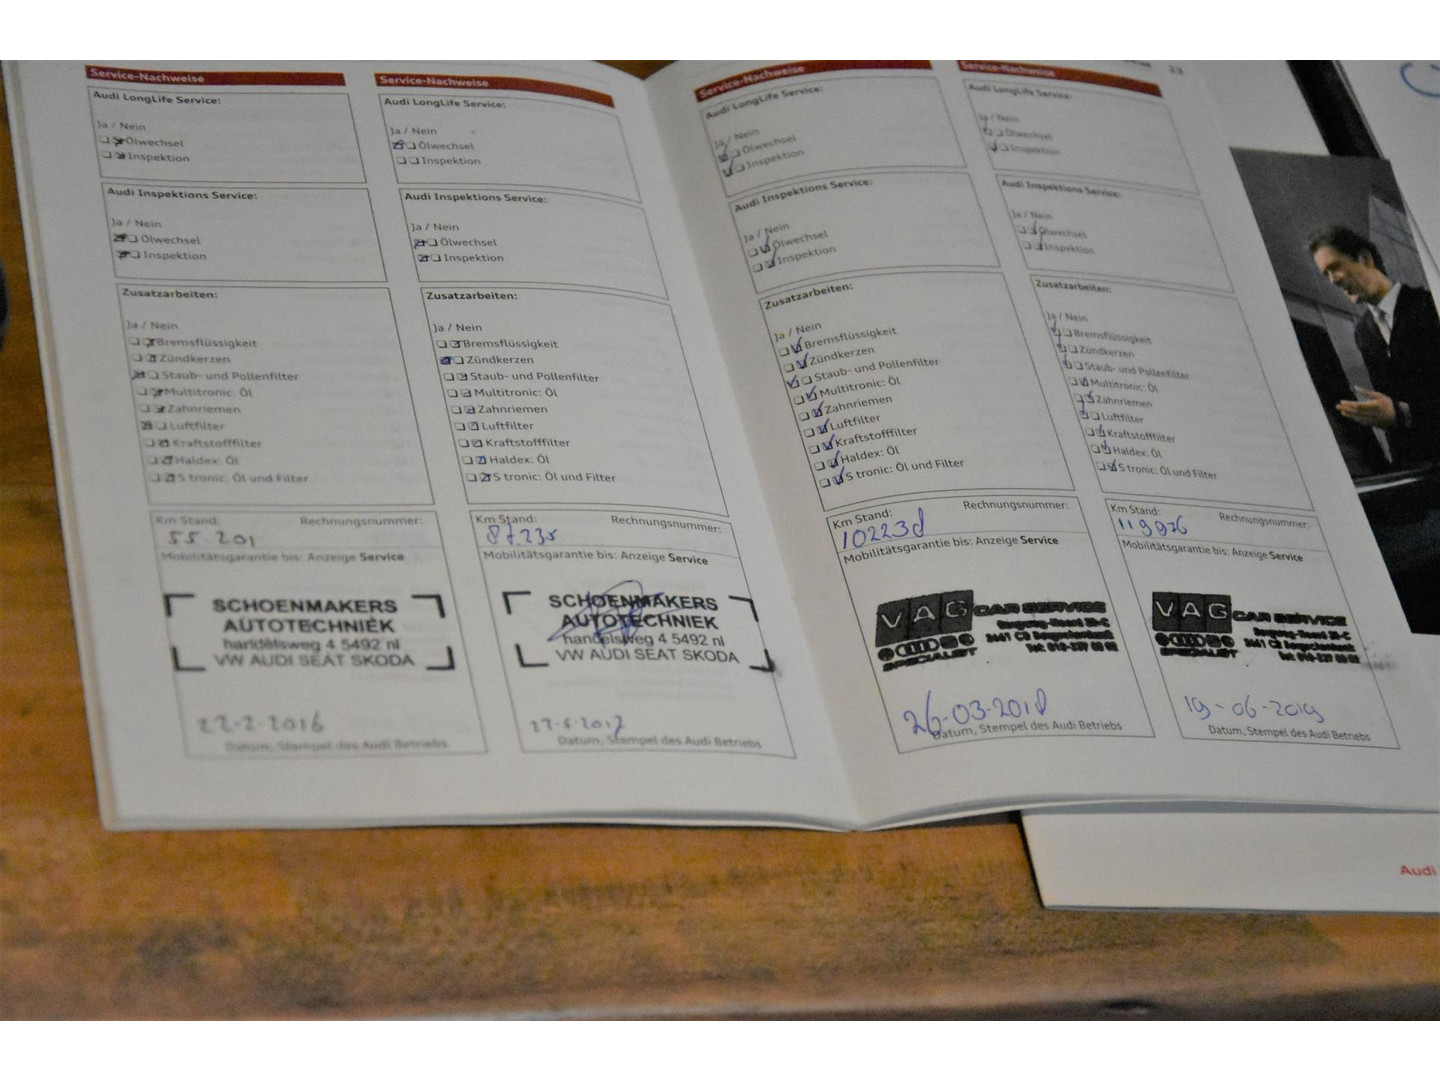 Service-Nachweise
Audi LongLife Service:
Ja / Nein
Ölwechsel
Inspektion
Audi Inspektions Service:
Ja / Nein
Ölwechsel
Inspektion
Zusatzarbeiten:
Ja / Nein
Bremsflüssigkeit
Zündkerzen
Staub- und Pollenfilter
Multitronic: Öl
Zahnriemen
Luftfilter
Kraftstofffilter
Haldex: Öl
S tronic: Öl und Filter
Km Stand: Rechnungsnummer:
55.201
Mobilitätsgarantie bis: Anzeige Service
SCHOENMAKERS
AUTOTECHNIEK
handelsweg 4 5492 nl
VW AUDI SEAT SKODA
22-2-2016
Datum, Stempel des Audi Betriebs
Service-Nachweise
Audi LongLife Service:
Ja / Nein
Ölwechsel
Inspektion
Audi Inspektions Service:
Ja / Nein
Ölwechsel
Inspektion
Zusatzarbeiten:
Ja / Nein
Bremsflüssigkeit
Zündkerzen
Staub- und Pollenfilter
Multitronic: Öl
Zahnriemen
Luftfilter
Kraftstofffilter
Haldex: Öl
S tronic: Öl und Filter
Km Stand: Rechnungsnummer:
Mobilitätsgarantie bis: Anzeige Service
SCHOENMAKERS
AUTOTECHNIEK
handelsweg 4 5492 nl
VW AUDI SEAT SKODA
Datum, Stempel des Audi Betriebs
Service-Nachweise
Audi LongLife Service:
Ja / Nein
Ölwechsel
Inspektion
Audi Inspektions Service:
Ja / Nein
Ölwechsel
Inspektion
Zusatzarbeiten:
Ja / Nein
Bremsflüssigkeit
Zündkerzen
Staub- und Pollenfilter
Multitronic: Öl
Zahnriemen
Luftfilter
Kraftstofffilter
Haldex: Öl
S tronic: Öl und Filter
Km Stand: Rechnungsnummer:
102238
Mobilitätsgarantie bis: Anzeige Service
VAG CAR SERVICE
SPECIALIST
26-03-2018
Datum, Stempel des Audi Betriebs
Service-Nachweise
Audi LongLife Service:
Ja / Nein
Ölwechsel
Inspektion
Audi Inspektions Service:
Ja / Nein
Ölwechsel
Inspektion
Zusatzarbeiten:
Ja / Nein
Bremsflüssigkeit
Zündkerzen
Staub- und Pollenfilter
Multitronic: Öl
Zahnriemen
Luftfilter
Kraftstofffilter
Haldex: Öl
S tronic: Öl und Filter
Km Stand: Rechnungsnummer:
119976
Mobilitätsgarantie bis: Anzeige Service
VAG CAR SERVICE
SPECIALIST
19-06-2019
Datum, Stempel des Audi Betriebs
Audi